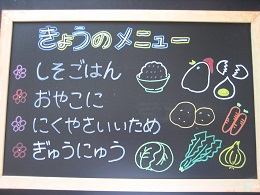 きょうのメニュー
しそごはん
おやこに
にくやさいいため
ぎゅうにゅう